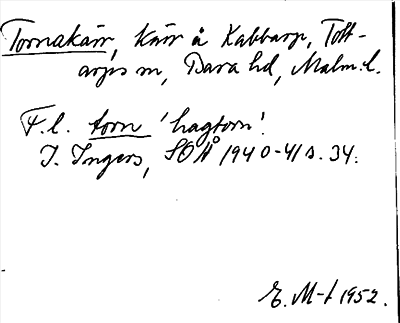 Tornakärr, Kärr å Kabbarp, Tott-
arps sn, Bara hd, Malm. l.
F. l. torn 'hagtorn'.
I. Ingers, SOÅ 1940-41 s. 34.
E. M-t 1952.